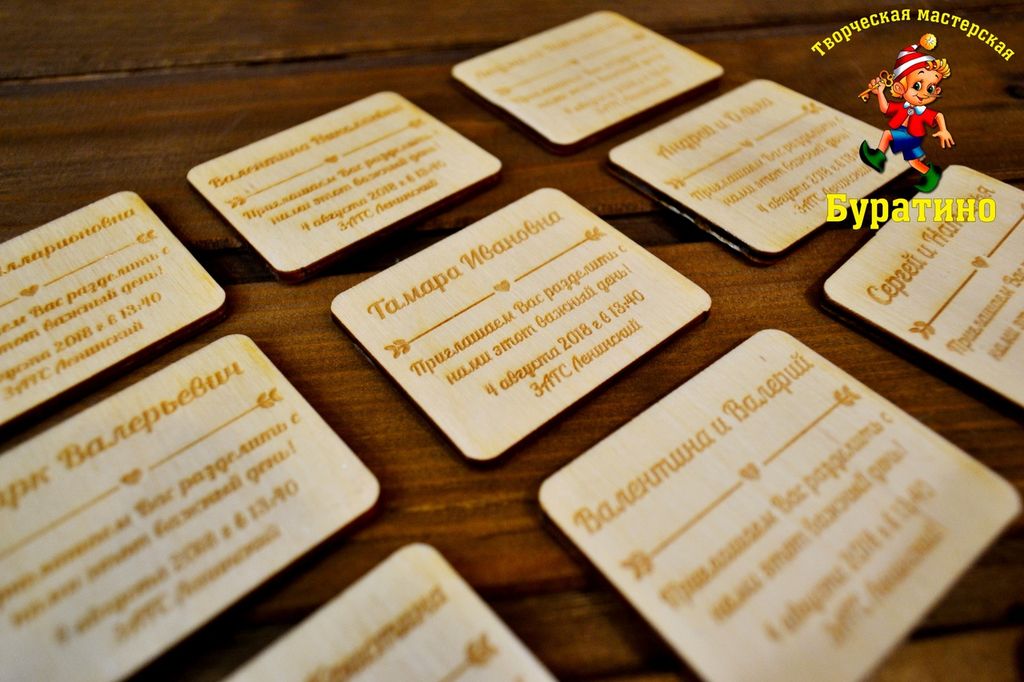 Творческая мастерская
Буратино
Валентина
Приглашаем Вас разделить с
нами этот важный день!
4 августа 2018 г в 13:40
ЗАГС Ленинский
Андрей и Ольга
Приглашаем Вас разделить с
нами этот важный день!
4 августа 2018 г в
ЗАГС
Сергей и
Приглашаем Вас
нами этот
Тамара Ивановна
Приглашаем Вас разделить с
нами этот важный день!
4 августа 2018 г в 13:40
ЗАГС Ленинский
лларионовна
ем Вас разделить с
этот важный день!
густа 2018 г в 13:40
ГС Ленинский
арк Валерьевич
Вас разделить с
нами этот важный день!
4 августа 2018 г в 13:40
ЗАГС Ленинский
Валентина и Валерий
Приглашаем Вас разделить с
нами этот важный день!
4 августа 2018 г в 13:40
ЗАГС Ленинский